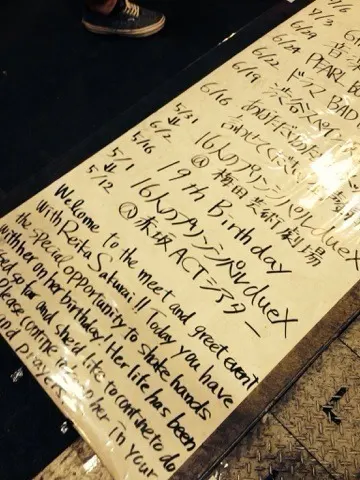 7/3
6/29 音
6/24 PEARL
6/22 ドラマ BAD
6/19 渋谷スペイン
6/16
5/31
↓
6/2
16人のプリンシパルdueX
梅田芸術劇場
5/16 19th Birthday
5/1
↓
5/12
16人のプリンシパルdueX
赤坂ACTシアター
Welcome to the meet and greet event
with Reika Sakurai !! Today you have
the special opportunity to shake hands
with her on her birthday! Her life has been
so far and she'd like to continue to do
Please continue to her in your
and prayers